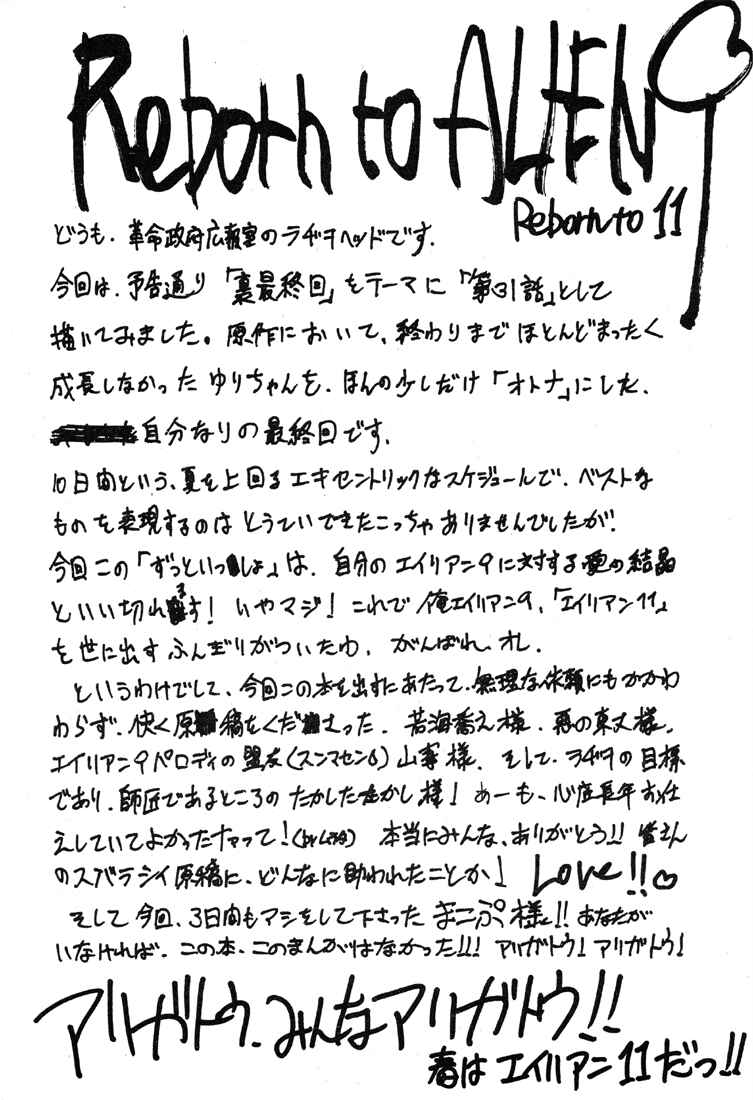 Reborn to ALIEN9
Reborn to 11
どうも、革命政府広報室のラヂヲヘッドです。
今回は、予告通り「裏最終回」をテーマに「第31話」として
描いてみました。原作において、終わりまでほとんどまったく
成長しなかったゆりちゃんを、ほんの少しだけ「オトナ」にした、
自分なりの最終回です。
10日間という、夏を上回るエキセントリックなスケジュールで、ベストな
ものを表現するのはとうていできたこっちゃありませんでしたが、
今回この「ずっといっしょ」は、自分のエイリアン9に対する愛の結晶
といい切れます!いやマジ!これで俺エイリアン9、「エイリアン11」
を世に出すふんぎりがついたわ、がんばれ、オレ、
というわけでして、今回この本を出すにあたって、無理な依頼にもかかわ
わらず、快く原稿をくださった、若海喬え様、悪の東丈様、
エイリアン9パロディの盟友(スンマセン6)山寨様、そして、ラヂヲの目標
であり、師匠であるところのたかしたたかし様!あーも、心底長年お仕
えしていてよかったナァって!  本当にみんな、ありがとう!!皆さん
のスバラシイ原稿に、どんなに助われたことか! Love!!♡
そして今回、3日間もアシをして下さったまこぷ様!!あなたが
いなければ、この本、このまんがはなかった!!!アリガトウ!アリガトウ!
アリガトウ、みんなアリガトウ!!
春はエイリアン11だっ!!